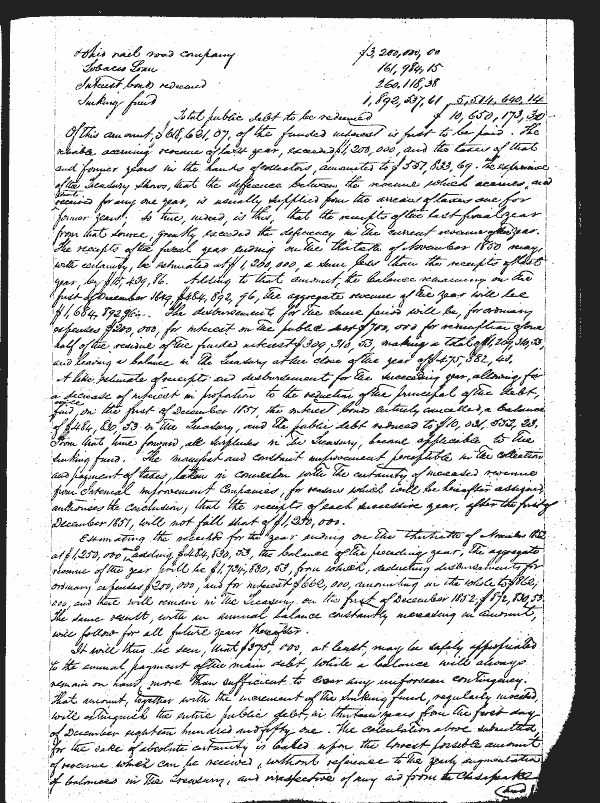 Ohio rail road company $3,200,000,00
Tobacco Loan 161,984,15
Interest bonds redeemed 260,118,38
Sinking fund 1,892,537,61 5,514,640,14
Total public debt to be redeemed $10,650,173,30
Of this amount, $618,621,07, of the funded interest is first to be paid. The
accruing revenue of last year, exceeded $1,200,000, and the taxes of that
and former years in the hands of collectors, amounted to $557,833,69. The experience
of the Treasury shows, that the difference between the revenue which accrues, and that
received for any one year, is usually supplied from the arrears of taxes due for
former years. So true, indeed, is this, that the receipts of the last fiscal year
from that source, greatly exceeded the deficiency in the current revenue of the year.
The receipts of the fiscal year ending on the thirtieth of November 1850 may,
with certainty, be estimated at $1,200,000, a sum less than the receipts of last
year, by Adding to that amount, the balance remaining on the
first of December 1849, $484,892,96, the aggregate revenue of the year will be
$1,684,892,96. The disbursements for the same period will be, for ordinary
expenses $200,000, for interest on the public debt $700,000 for redemption of one
half of the residue of the funded interest $309,310,53, making a total of $1,209,310,53,
and leaving a balance in the Treasury at the close of the year of $475,582,43.
A like estimate of receipts and disbursements for the succeeding year, allowing for
a decrease of interest in proportion to the reduction of the principal of the debt,
find, on the first of December 1851, the interest bonds entirely cancelled, a balance
of $484,830,53 in the Treasury, and the public debt reduced to $10,031,552,23.
From that time forward, all surpluses in the Treasury, become applicable to the
sinking fund. The manifest and constant improvement perceptible in the collection
and payment of taxes, taken in connexion with the certainty of increased revenue
from Internal improvement Companies, for reasons which will be hereafter assigned
authorises the conclusion, that the receipts of each successive year, after the first of
December 1851, will not fall short of $1,250,000.
Estimating the receipts for the year ending on the thirtieth of November 1852
at $1,250,000, and adding $484,830,53, the balance of the preceding year, the aggregate
revenue of the year will be $1,734,830,53, from which, deducting disbursements for
ordinary expenses $200,000, and for interest $662,000, amounting in the whole to $862,
000, and there will remain in the Treasury, on the first of December 1852 $872,830,53.
The same result, with an annual balance constantly increasing in amount,
will follow for all future years thereafter.
It will thus be seen, that $375,000, at least, may be safely appropriated
to the annual payment of the main debt, while a balance will always
remain on hand, more than sufficient to cover any unforseen contingency.
That amount, together with the increment of the sinking fund, regularly invested
will extinguish the entire public debt, in thirteen years from the first day
of December eighteen hundred and fifty one. The calculation above submitted
for the sake of absolute certainty is based upon the lowest possible amount
of revenue which can be received, without reference to the yearly augmentation
of balances in the Treasury, and irrespective of any aid from the Chesapeake
and